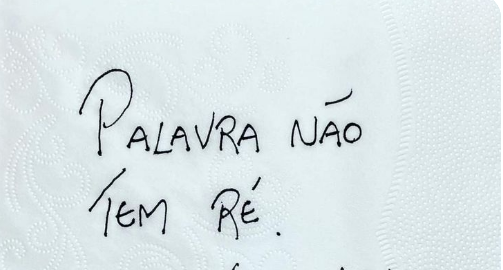 PALAVRA NÃO
TEM RÉ.